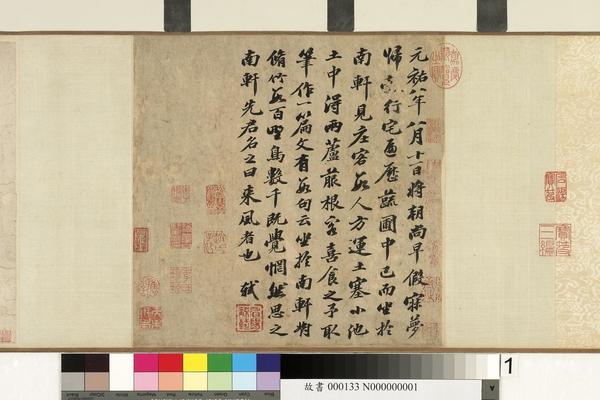 元祐八年八月十一日將朝尚早假寐夢
歸縠行宅遍歷蔬圃中已而坐於
南軒見庄客數人方運土塞小池
土中得兩蘆菔根客喜食之予取
筆作一篇文有數句云坐於南軒對
脩竹數百野鳥數千既覺惘然思之
南軒先君名之曰來風者也 軾
1
故書 000133 N000000001
A